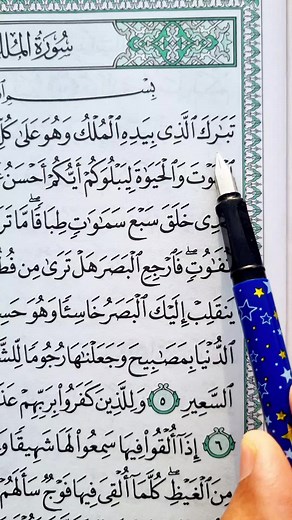 سُورَةُ المُلۡ
بِسۡمِ
تَبَٰرَكَ ٱلَّذِي بِيَدِهِ ٱلۡمُلۡكُ وَهُوَ عَلَىٰ كُلِّ
وَٱلۡحَيَوٰةَ لِيَبۡلُوَكُمۡ أَيُّكُمۡ أَحۡسَنُ
خَلَقَ سَبۡعَ سَمَٰوَٰتٖ طِبَاقٗاۖ مَّا تَرَ
فَٱرۡجِعِ ٱلۡبَصَرَ هَلۡ تَرَىٰ مِن فُطُ
يَنقَلِبۡ إِلَيۡكَ ٱلۡبَصَرُ خَاسِئٗا وَهُوَ حَسِ
ٱلدُّنۡيَا بِمَصَٰبِيحَ وَجَعَلۡنَٰهَا رُجُومٗا لِّلشَّ
ٱلسَّعِيرِ ٥ وَلِلَّذِينَ كَفَرُواْ بِرَبِّهِمۡ عَذَ
٦ إِذَآ أُلۡقُواْ فِيهَا سَمِعُواْ لَهَا شَهِيقٗا وَ
مِنَ ٱلۡغَيۡظِۖ كُلَّمَآ أُلۡقِيَ فِيهَا فَوۡجٞ سَأَلَهُمۡ